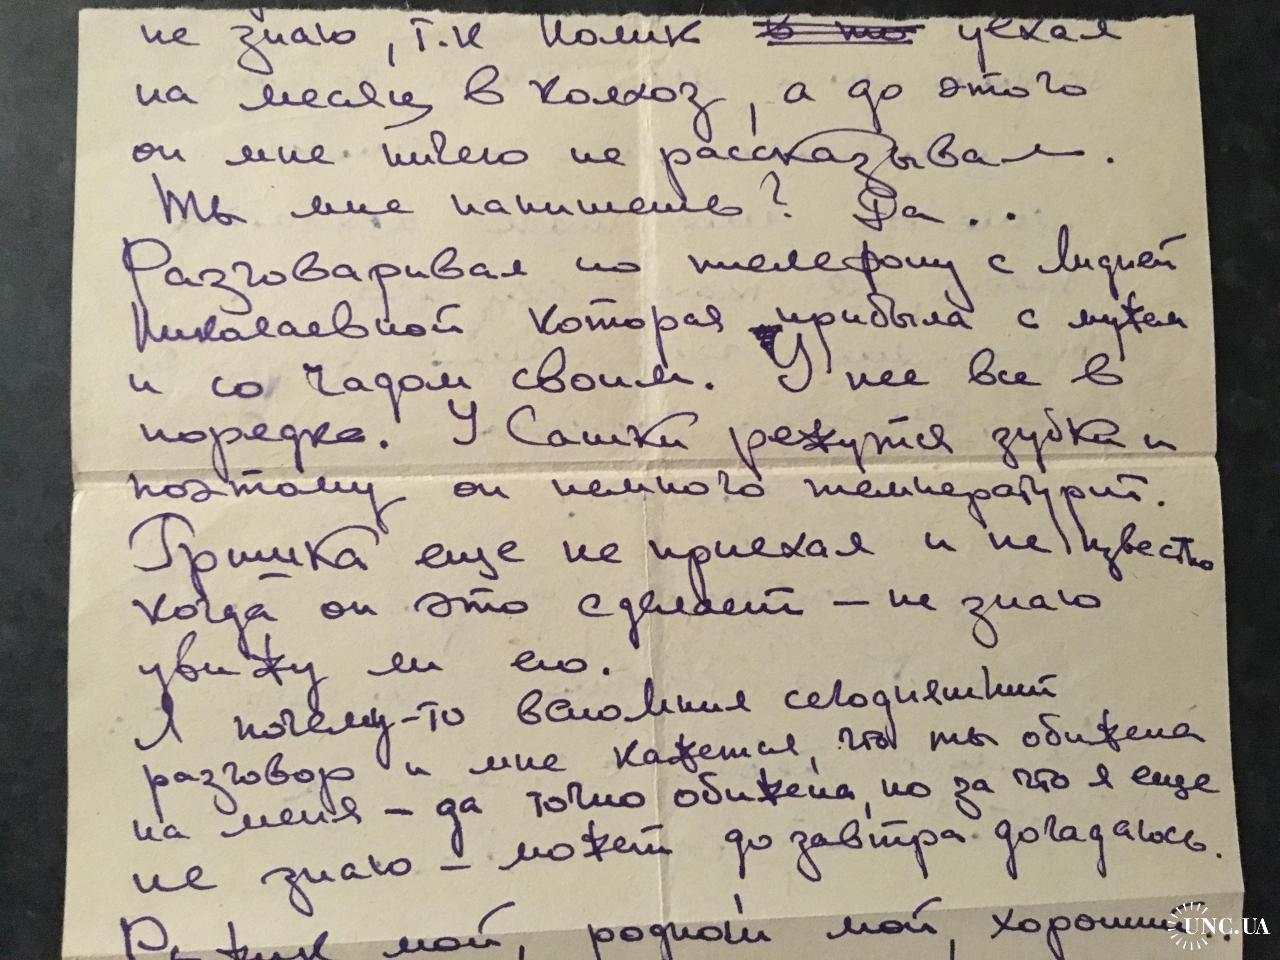 не знаю, т.к Колик уехал
на месяц в колхоз, а до этого
он мне ничего не рассказывал.
Ты мне напишешь? Да...
Разговаривал по телефону с Лидией
Николаевной которая прибыла с мужем
и со чадом своим. У нее все в
порядке. У Сашки режутся зубки и
поэтому он немного температурит.
Гришка еще не приехал и не известно
когда он это сделает – не знаю
увижу ли его.
Я почему-то вспомнил сегодняшний
разговор и мне кажется, что ты обижена
на меня – да точно обижена, но за что я еще
не знаю – может до завтра догадаюсь.
мой, родной мой, хороший..
UNC.UA